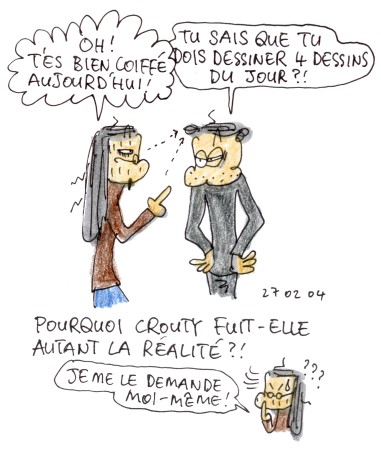 OH!
T'ES BIEN COIFFÉ
AUJOURD'HUI!
TU SAIS QUE TU
DOIS DESSINER 4 DESSINS
DU JOUR?!
27 02 04
POURQUOI CROUTY FUIT-ELLE
AUTANT LA RÉALITÉ?!
JE ME LE DEMANDE
MOI-MÊME!
???